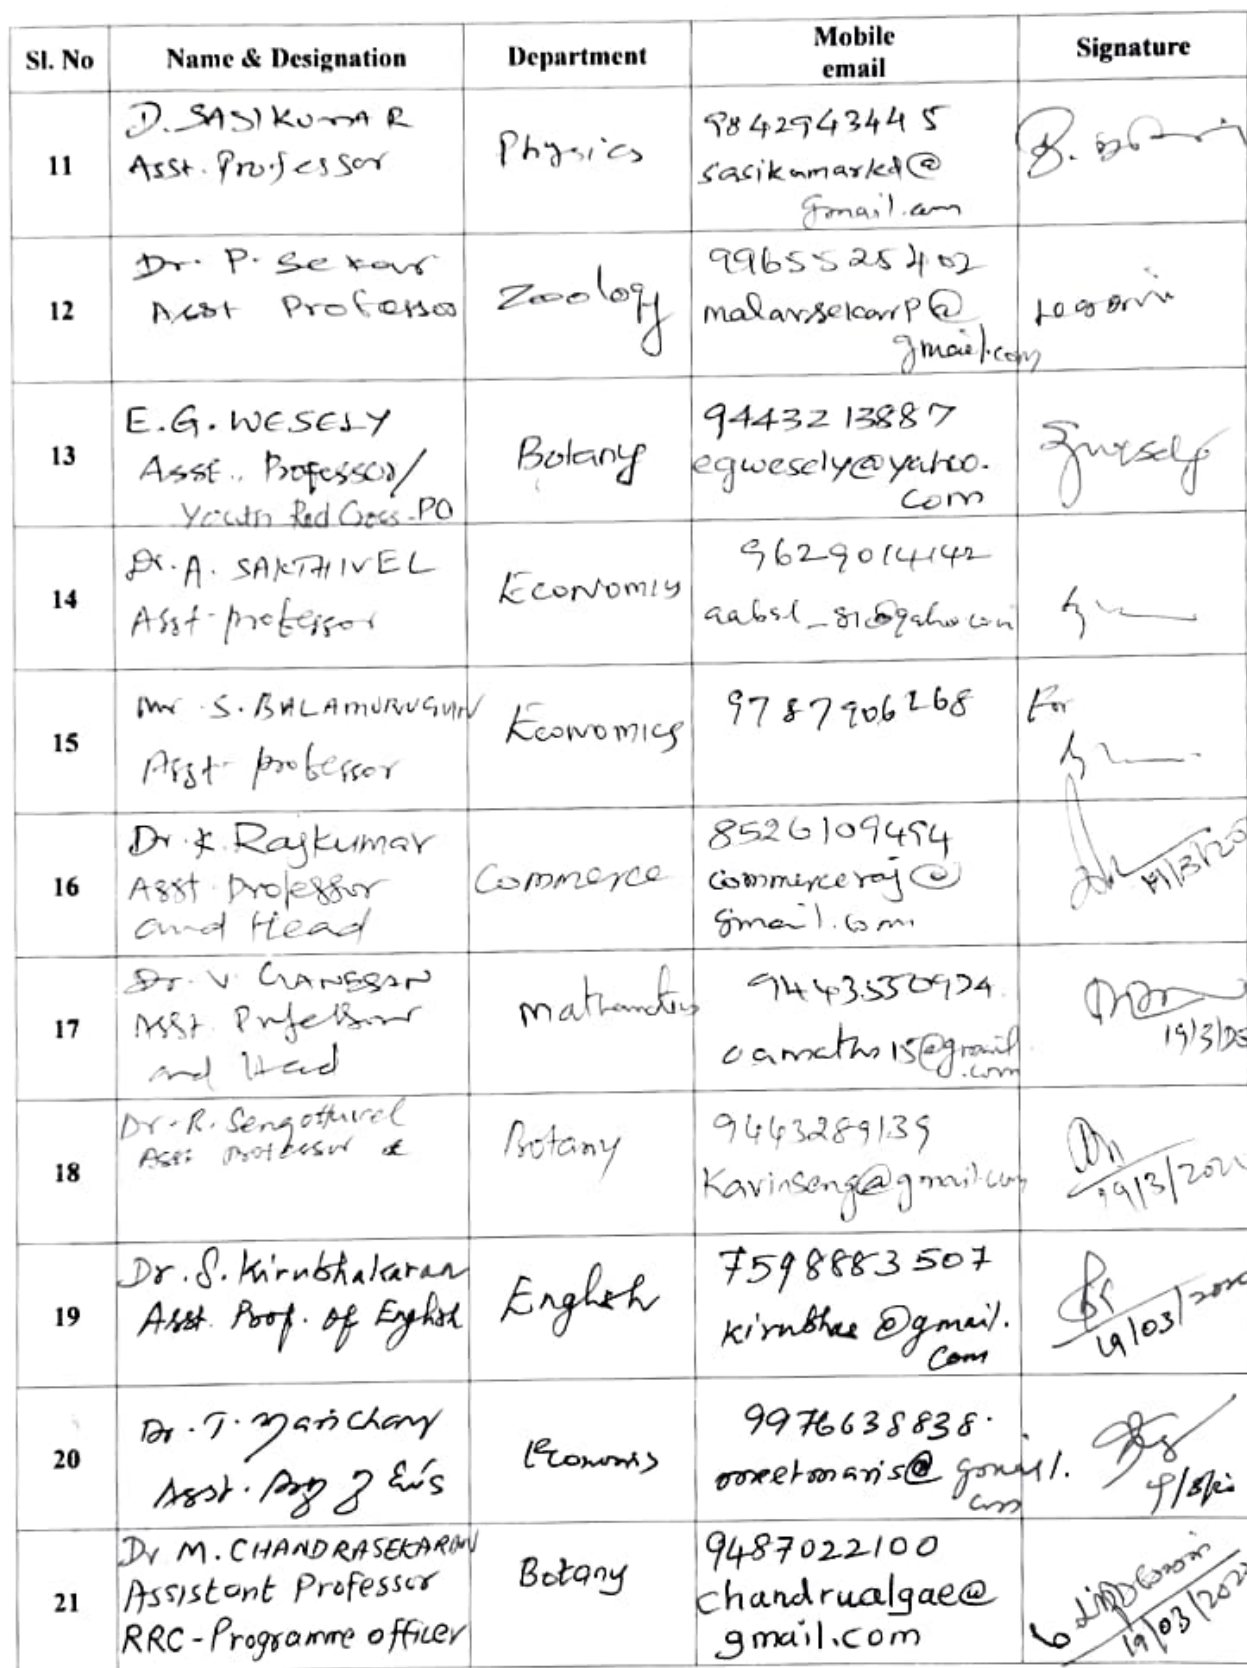 Sl. No Name & Designation Department Mobile Signature
email
11
D. SASIKUMAR
Asst. Professor
Physics
9842943445
sasikumarkd@
gmail.com
12
Dr. P. Sekar
Asst Professo
Zoology
9965525402
malarssekarp@
gmail.com
13
E.G. WESELY
Asst., Professor/
Youth Red Cross-PO
Botany
9443213887
egwesely@yahoo.
com
14
Dr. A. SAKTHIVEL
Asst-professor
Economis
9629014142
15
Mr S. BALAMURUGAN
Asst-professor
Economics
9787906268
For
16
Dr. K. Rajkumar
Asst Professor
and Head
Commerce
8526109494
commerceraj@
gmail.com
19/3/20
17
Dr. V. GANESAN
Asst. Professor
and Head
Mathematics
@gmail
.com
19/3/20
18
Dr. R. Sengottuvel
Asst Professor
Botany
9443289139
Kavinseng@gmail.com
19/3/202
19
Dr. S. Kirubhakaran
Asst. Prof. of English
English
7598883507
kirubhae@gmail.
Com
19/03/2020
20
Dr. T. Marichamy
Asst. Prof of Eco's
Economis
9976638838.
meetmaris@gmail.
com
21
Dr M. CHANDRASEKARAN
Assistant Professor
RRC-Programme officer
Botany
9487022100
chandrualgae@
gmail.com
19/03/202